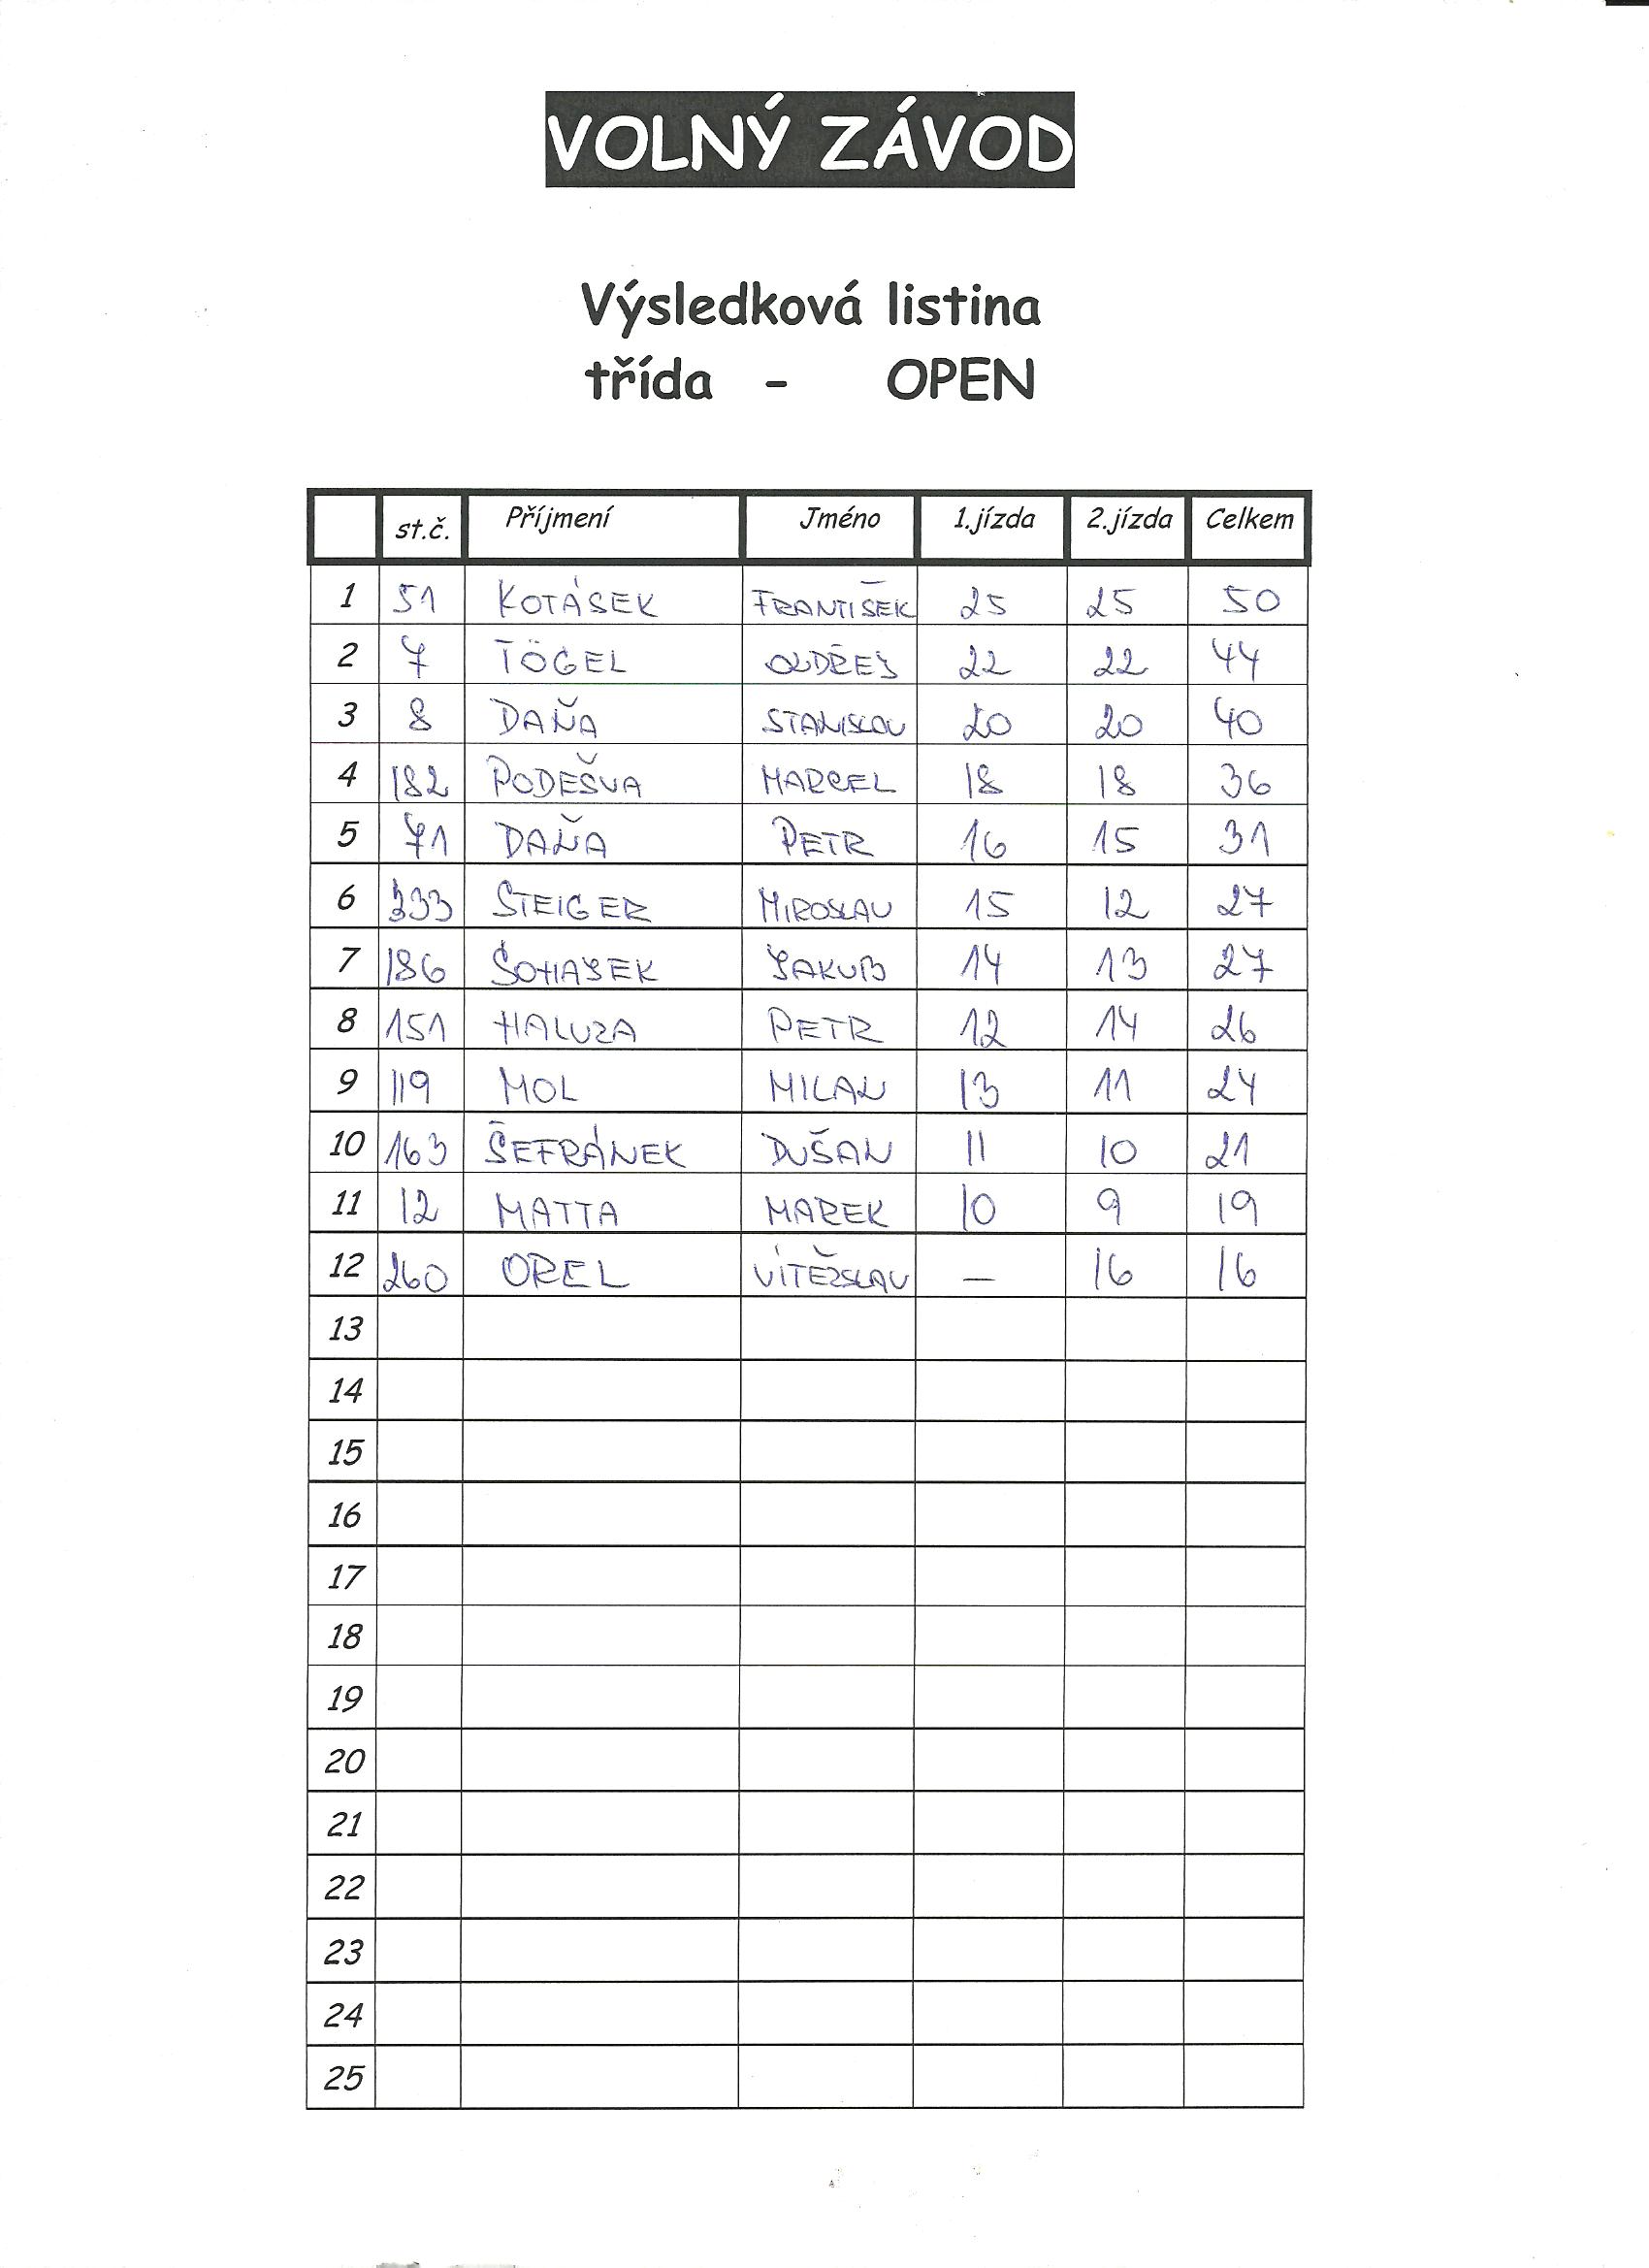 VOLNÝ ZÁVOD
Výsledková listina
třída - OPEN
st.č. Příjmení Jméno 1.jízda 2.jízda Celkem
1 51 KOTÁSEK FRANTIŠEK 25 25 50
2 7 TÖGEL OLDŘEJ 22 22 44
3 8 DAŇA STANISLAV 20 20 40
4 182 PODEŠVA MARCEL 18 18 36
5 71 DAŇA PETR 16 15 31
6 333 STEIGER MIROSLAV 15 12 27
7 186 JAKUB 14 13 27
8 151 HALUZA PETR 12 14 26
9 119 MOL MILAN 13 11 24
10 163 ŠEFRÁNEK DUŠAN 11 10 21
11 12 MATTA MAREK 10 9 19
12 260 OREL VÍTĚZSLAV — 16 16
13
14
15
16
17
18
19
20
21
22
23
24
25